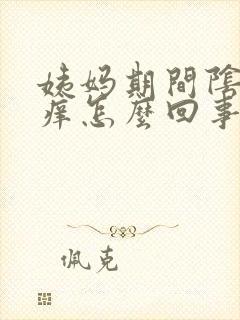 姨妈期間陰
痒怎麼回事
佩克